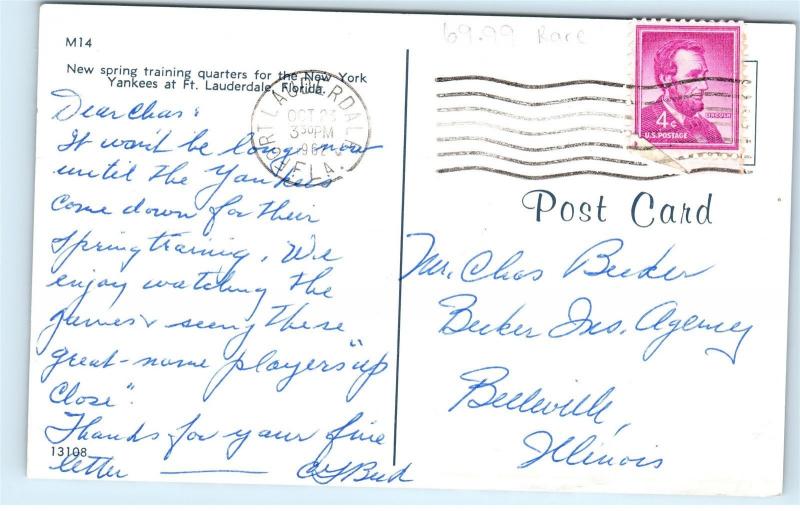 M14
New spring training quarters for the New York
Yankees at Ft. Lauderdale, Florida.
Dear Chas:
It won't be long now
until the Yankees
come down for their
spring training. We
enjoy watching the
games & seeing these
great-name players "up
close".
Thanks for your fine
letter
13108
69.99 Race
FORT LAUDERDALE
OCT 23
3 30 PM
1962
FLA.
LINCOLN
4¢
U.S. POSTAGE
Post Card
Mr. Chas Becker
Becker Ins. Agency
Belleville,
Illinois